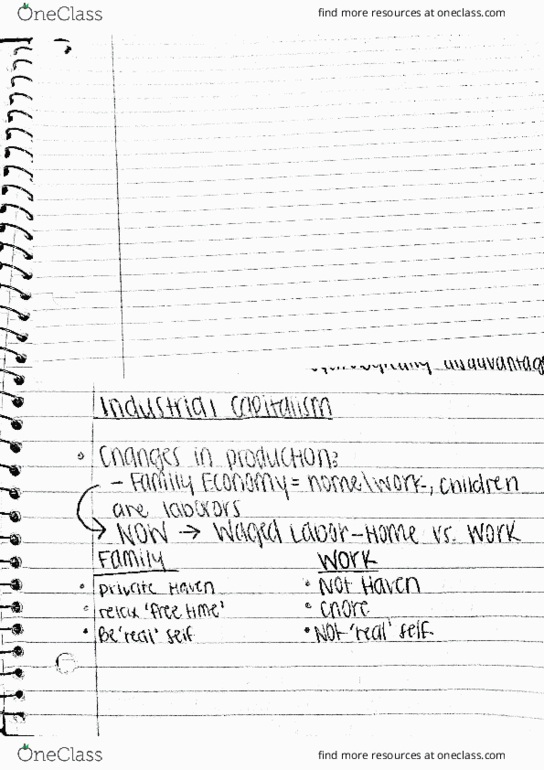 OneClass
find more resources at oneclass.com
disadvantage
Industrial Capitalism
• Changes in production:
- Family Economy = home/work, children
are laborors
→ NOW → Waged Labor - Home vs. Work
Family Work
• private Haven • Not Haven
• relax 'free time' • chore
• Be 'real' self • NOT 'real' self
OneClass
find more resources at oneclass.com